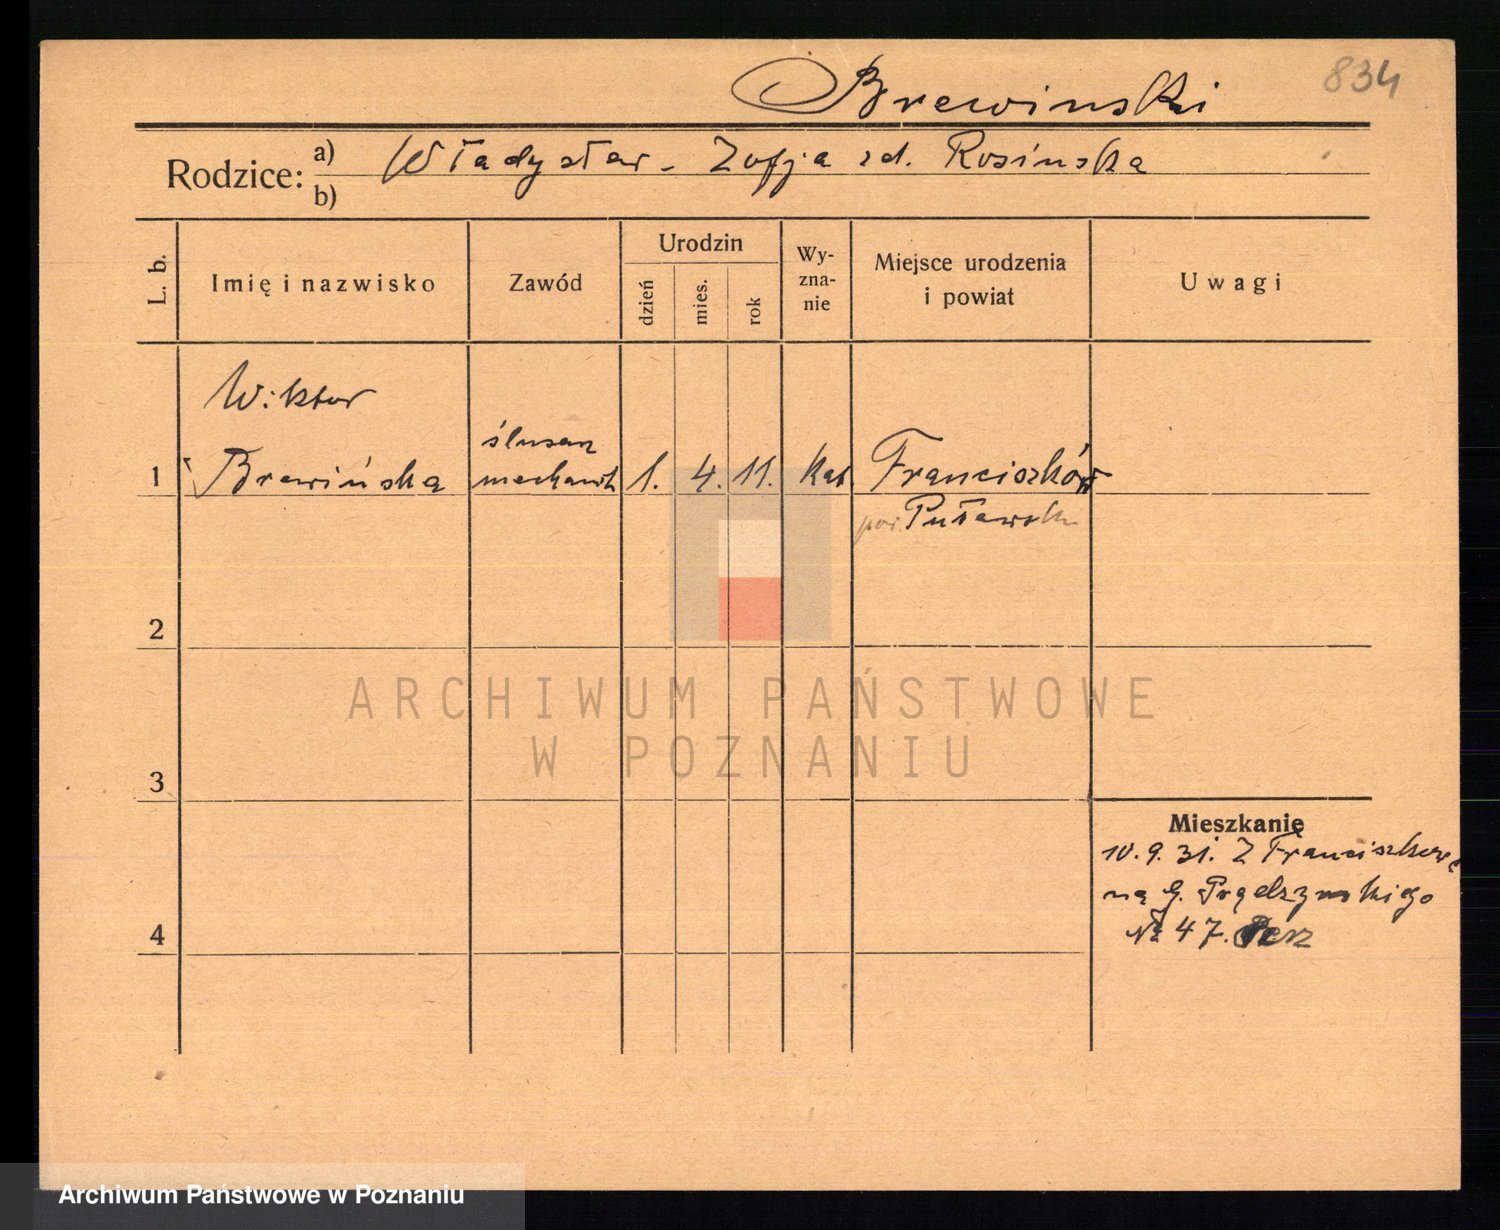 Brewinski
834
Rodzice:
a) Władysław - Zofja zd. Rosinska
b)
L. b.
Imię i nazwisko
Zawód
Urodzin
dzień
mies.
rok
Wy-
zna-
nie
Miejsce urodzenia
i powiat
Uwagi
Wiktor
ślusarz
1 Brewińska mechanik 1. 4. 11. Kat Franciszków
pow. Puławski
2
3
Mieszkanie
10. 9. 31. Z Franciszkowa
na G. Prądzynskiego
4
№ 47.
ARCHIWUM PAŃSTWOWE
W POZNANIU
Archiwum Państwowe w Poznaniu